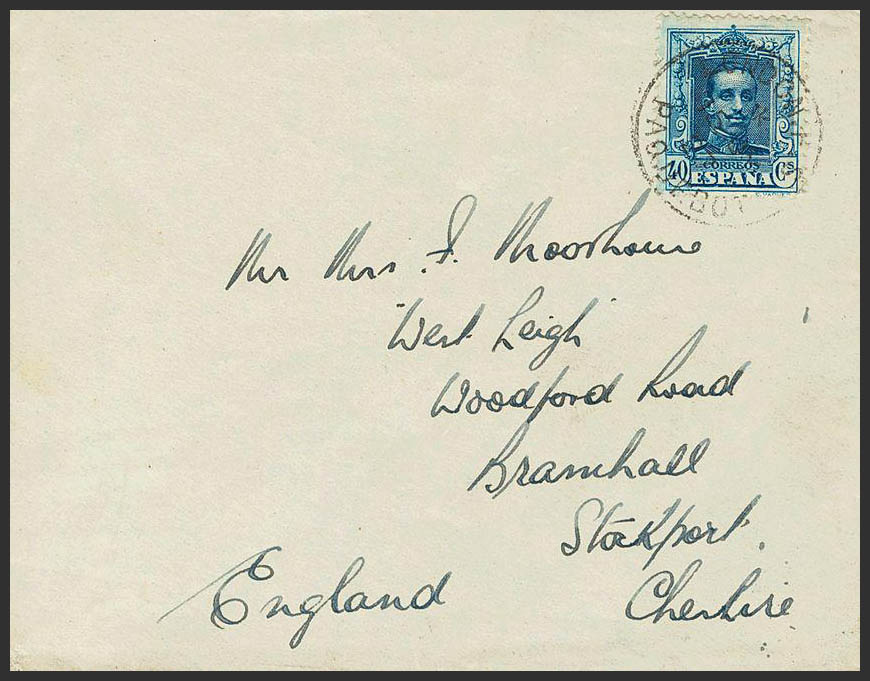 LONDON
PAQUEBOT
CORREOS
40 Cs
ESPAÑA
Mr Mrs F. Moorhouse
"West Leigh"
Woodford Road
Bramhall
Stockport.
England Cheshire